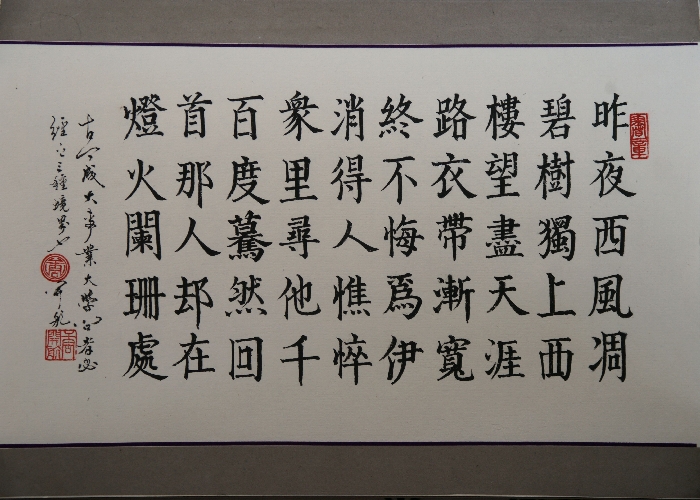 昨夜西風凋
碧樹獨上西
樓望盡天涯
路衣帶漸寬
終不悔爲伊
消得人憔悴
衆里尋他千
百度驀然回
首那人却在
燈火闌珊處
古今成大事業大學問者必
經之三種境界也